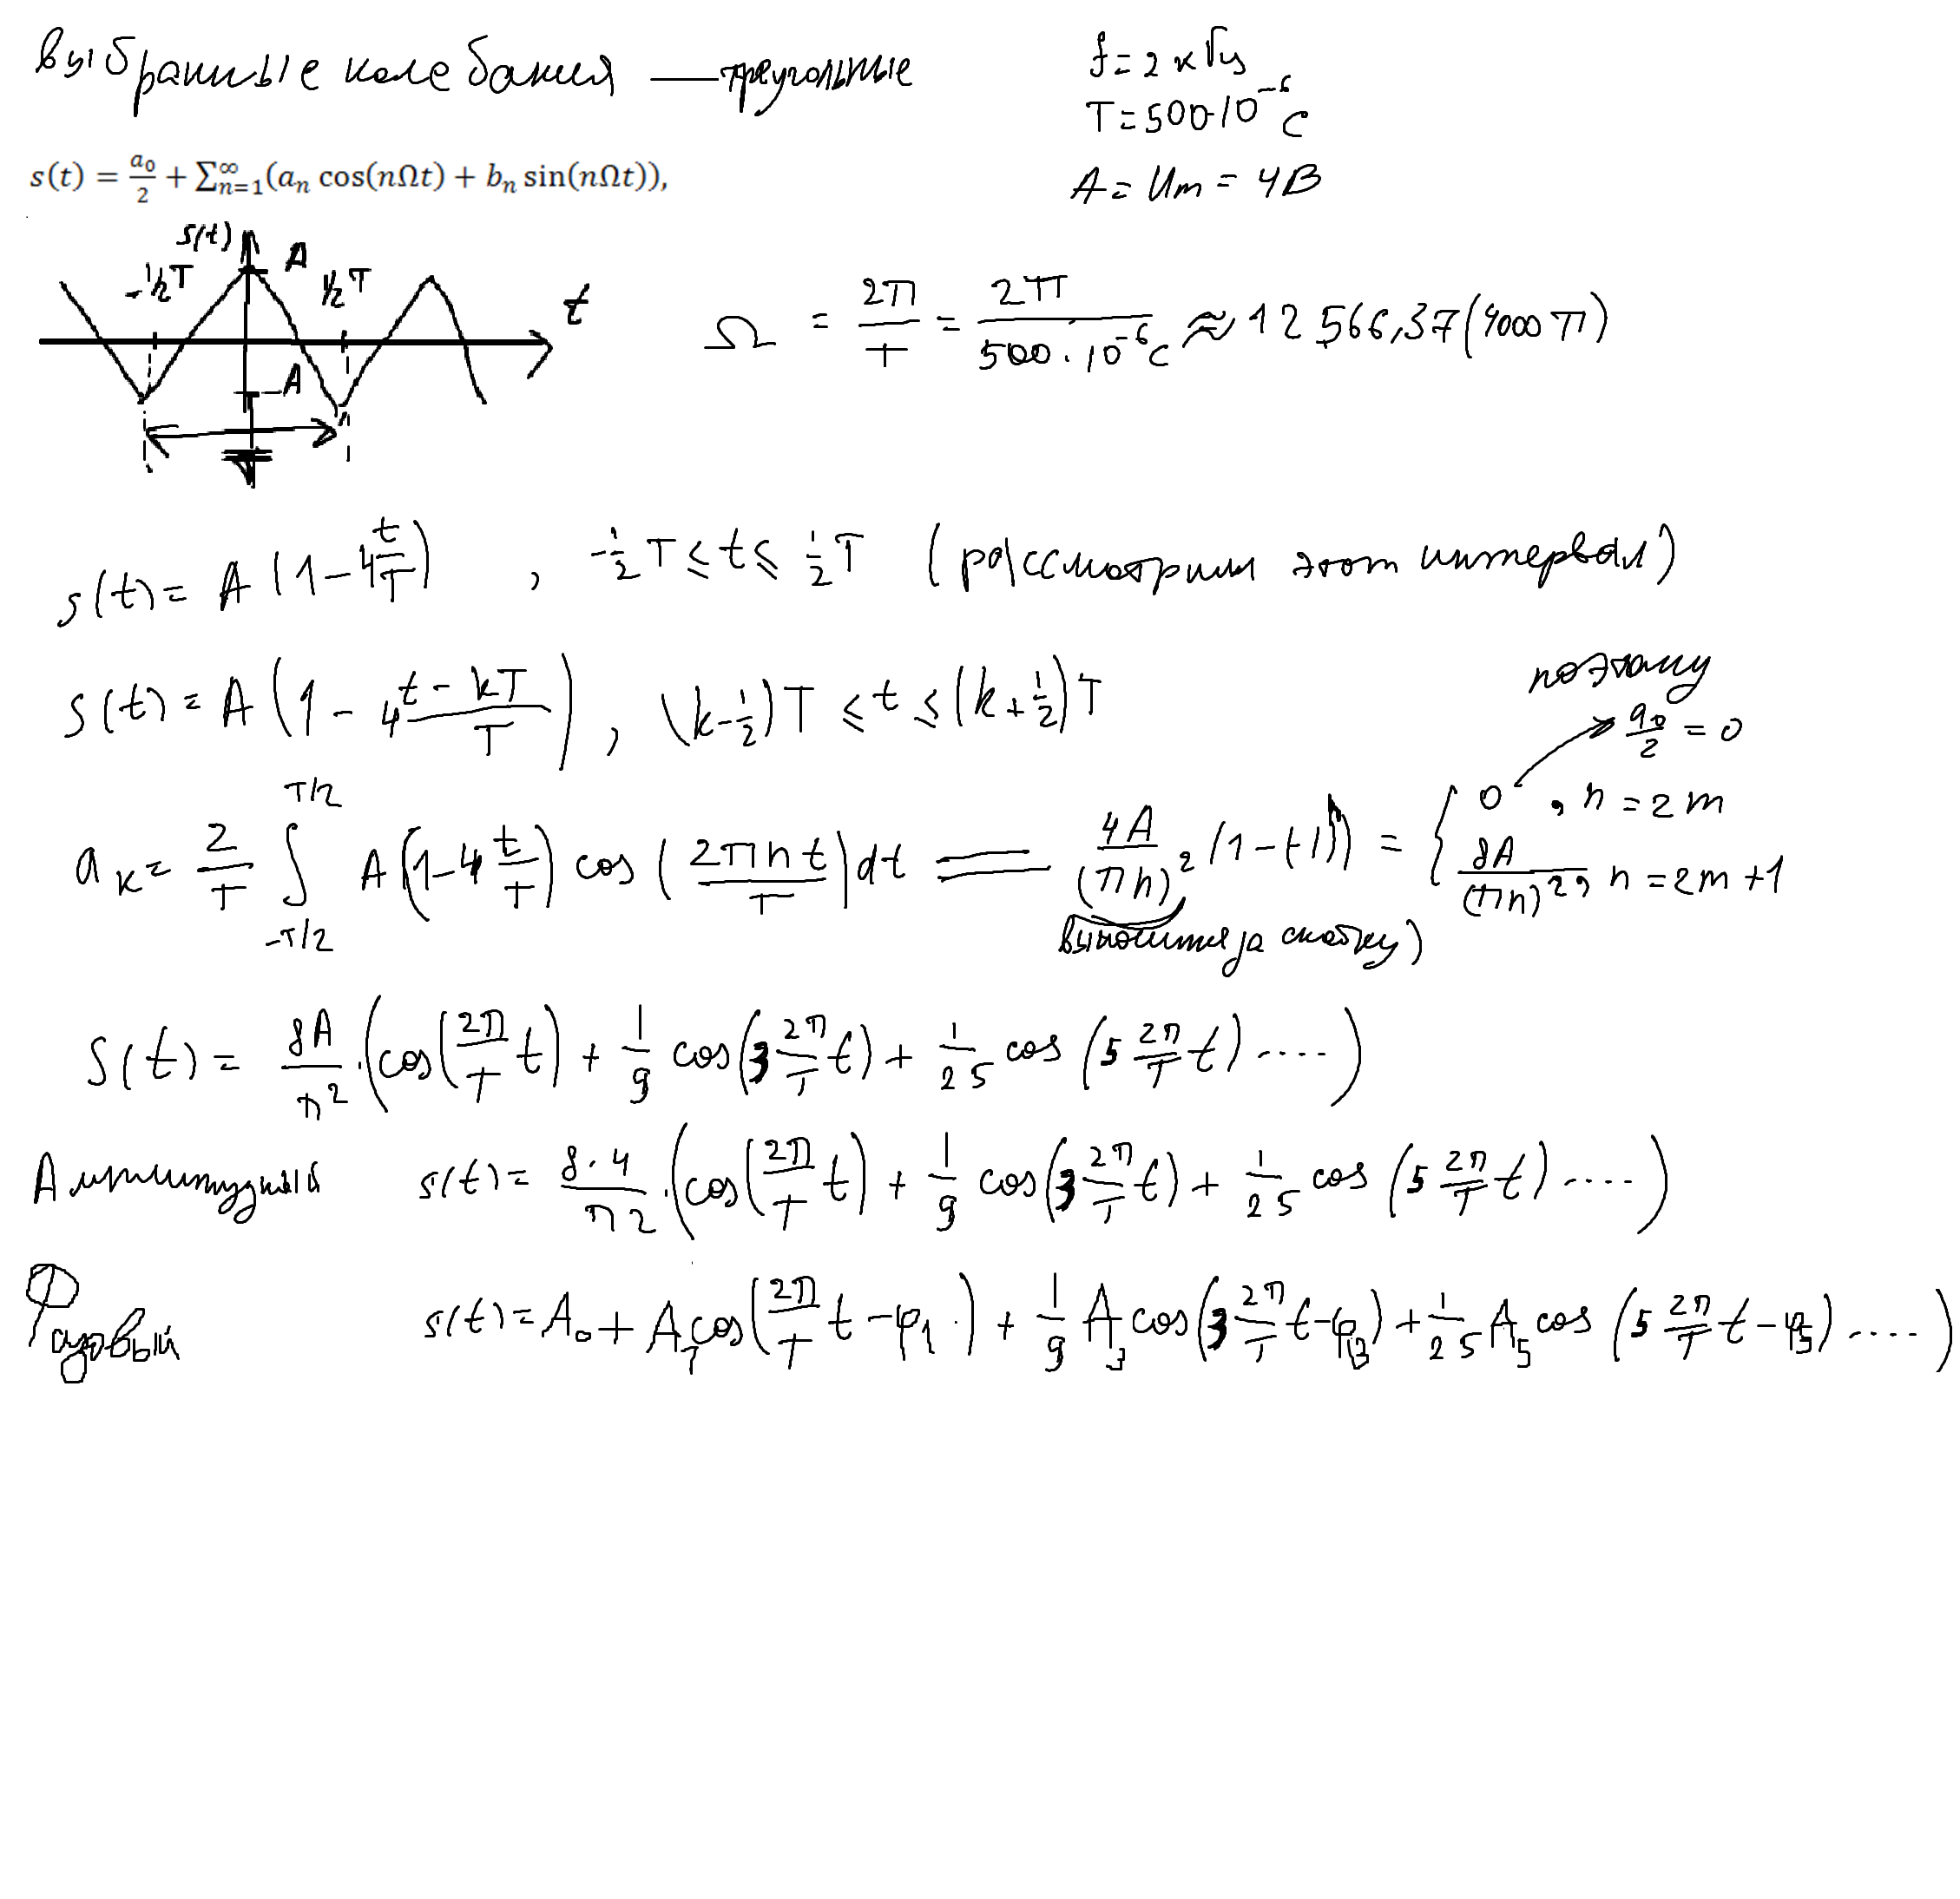 выбранные колебания — треугольные
f = 2 кГц
T = 500·10⁻⁶ с
A = Um = 4 В
s(t) = a₀/2 + ∑ₙ₌₁^∞ (aₙ cos(nΩt) + bₙ sin(nΩt)),
s(t) A
-½T ½T t
-A
T
Ω = 2π/T = 2π/(500·10⁻⁶ с) ≈ 12 566,37 (4000π)
s(t) = A(1 - 4 t/T), -½T ≤ t ≤ ½T (рассмотрим этот интервал)
s(t) = A(1 - 4 (t - kT)/T), (k - ½)T ≤ t ≤ (k + ½)T
поэтому
a₀/2 = 0
aк = 2/T ∫_{-T/2}^{T/2} A(1 - 4 t/T) cos(2πnt/T) dt = 4A/(πn)² (1 - (-1)ⁿ) = { 0, n = 2m; 8A/(πn)², n = 2m+1
выносится за скобку)
S(t) = 8A/π² · (cos(2π/T t) + 1/9 cos(3 2π/T t) + 1/25 cos(5 2π/T t) ....)
Амплитудный s(t) = 8·4/π² · (cos(2π/T t) + 1/9 cos(3 2π/T t) + 1/25 cos(5 2π/T t) ....)
Фазовый s(t) = A₀ + A₁ cos(2π/T t - φ₁) + 1/9 A₃ cos(3 2π/T t - φ₃) + 1/25 A₅ cos(5 2π/T t - φ₅) ....)